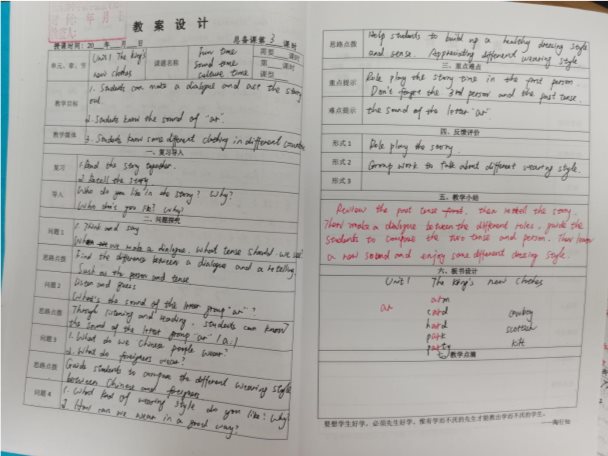 年 月
教 案 设 计
总备课第 3 课时
授课时间:20 年 月 日
单元、章、节
Unit 1 The king's
new clothes
课题名称
Fun time
Sound time
Culture time
需要 课时
第 课时
课型
教学目标
1. Students can make a dialogue and act the story
out.
2. Students know the sound of "ar".
教学媒体
3. Students know some different clothing in different countries
一、复习导入
复习
1. Read the story together.
2. Retell the story
导入
Who do you like in the story? Why?
Who don't you like? Why?
二、问题探究
问题 1
1. Think and say
When we make a dialogue, what tense should we use?
思路点拨
Find the difference between a dialogue and a retelling
Such as the person and tense
问题 2
Listen and guess
What's the sound of the letter group "ar"?
思路点拨
Through listening and reading, students can know
the sound of the letter group "ar"
问题 3
1. What do we Chinese people wear?
2. What do foreigners wear?
思路点拨
Guide students to compare the different wearing style
between Chinese and foreigners
问题 4
1. What kind of wearing style do you like? Why?
2. How can we wear in a good way?
思路点拨
Help students to build up a healthy dressing style
and sense. Appreciating different wearing style
三、重点难点
重点提示
Role play the story time in the first person.
Don't forget the 3rd person and the past tense.
难点提示
the sound of the letter "ar".
四、反馈评价
形式 1
Role play the story.
形式 2
Group work to talk about different wearing style.
形式 3
五、教学小结
Review the past tense first, then retell the story.
Then make a dialogue between the different roles, guide the
students to compare the two tense and person. Then learn
a new sound and enjoy some different dressing style.
六、板书设计
Unit 1 The king's new clothes
arm
ar card cowboy
hard scottish
park kilt
party
七、教学点滴
要想学生好学,必须先生好学,惟有学而不厌的先生才能教出学而不厌的学生。
——陶行知